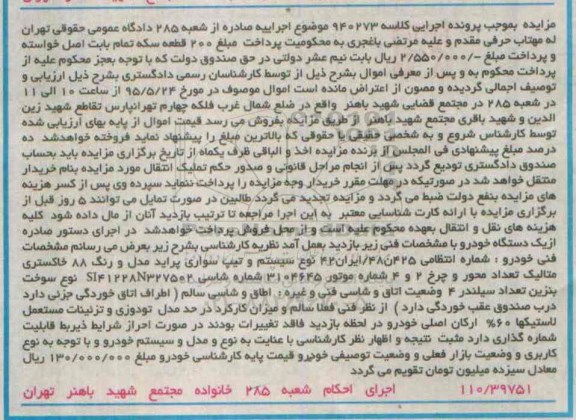 مزایده بموجب پرونده اجرایی کلاسه ۹۴۰۲۷۳ موضوع اجراییه صادره از شعبه ۲۸۵ دادگاه عمومی حقوقی تهران
له مهتاب حرفی مقدم و علیه مرتضی باغجری به محکومیت پرداخت مبلغ ۲۰۰ قطعه سکه تمام بابت اصل خواسته
و پرداخت مبلغ -/۲/۵۵۰/۰۰۰ ریال بابت نیم عشر دولتی در حق صندوق دولت که با توجه بعجز محکوم علیه از
پرداخت محکوم به و پس از معرفی اموال بشرح ذیل از توسط کارشناسان رسمی دادگستری بشرح ذیل ارزیابی و
توصیف اجمالی گردیده و مصون از اعتراض مانده است اموال موصوف در مورخ ۹۵/۵/۲۴ از ساعت ۱۰ الی ۱۱
در شعبه ۲۸۵ در مجتمع قضایی شهید باهنر واقع در ضلع شمال غرب فلکه چهارم تهرانپارس تقاطع شهید زین
الدین و شهید باقری مجتمع شهید باهنر از طریق مزایده بفروش می رسد قیمت اموال از پایه بهای ارزیابی شده
توسط کارشناس شروع و به شخصی حقیقی یا حقوقی که بالاترین مبلغ را پیشنهاد نماید فروخته خواهدشد ده
درصد مبلغ پیشنهادی فی المجلس از برنده مزایده اخذ و الباقی ظرف یکماه از تاریخ برگزاری مزایده باید بحساب
صندوق دادگستری تودیع گردد پس از انجام مراحل قانونی و صدور حکم تملیک انتقال مورد مزایده بنام خریدار
منتقل خواهد شد در صورتیکه در مهلت مقرر خریدار وجه مزایده را پرداخت ننماید سپرده وی پس از کسر هزینه
های مزایده بنفع دولت ضبط می گردد و مزایده تجدید می گردد طالبین در صورت تمایل می توانند ۵ روز قبل از
برگزاری مزایده با ارائه کارت شناسایی معتبر به این اجرا مراجعه تا ترتیب بازدید آنان از مال داده شود کلیه
هزینه های نقل و انتقال بعهده محکوم علیه است و از محل فروش پرداخت خواهدشد در اجرای دستور صادره
ازیک دستگاه خودرو با مشخصات فنی زیر بازدید بعمل آمد نظریه کارشناسی بشرح زیر بعرض می رسانم مشخصات
فنی خودرو : شماره انتظامی ۴۲۵ن۴۸/ایران۴۲ نوع سیستم و تیپ سواری پراید مدل و رنگ ۸۸ خاکستری
متالیک تعداد محور و چرخ ۲ و ۴ شماره موتور ۳۱۰۴۶۴۵ شماره شاسی SI۴۱۲۲۸N۳۲۷۵۰۲ نوع سوخت
بنزین تعداد سیلندر ۴ وضعیت اتاق و شاسی فنی و غیره : اطاق و شاسی سالم ( اطراف اتاق خوردگی جزئی دارد
درب صندوق عقب خوردگی دارد ) از نظر فنی فعلا سالم و میزان کارکرد در حد مدل تودوزی و تزئینات مستعمل
لاستیکها ۶۰% ارکان اصلی خودرو در لحظه بازدید فاقد تغییرات بودند در صورت احراز شرایط ذیربط قابلیت
شماره گذاری دارد مثبت نتیجه و اظهار نظر کارشناسی با عنایت به نوع و مدل و سیستم خودرو و با توجه به نوع
کاربری و وضعیت بازار فعلی و وضعیت توصیفی خودرو قیمت پایه کارشناسی خودرو مبلغ ۱۳۰/۰۰۰/۰۰۰ ریال
معادل سیزده میلیون تومان تقویم می گردد
۱۱۰/۳۹۷۵۱ اجرای احکام شعبه ۲۸۵ خانواده مجتمع شهید باهنر تهران